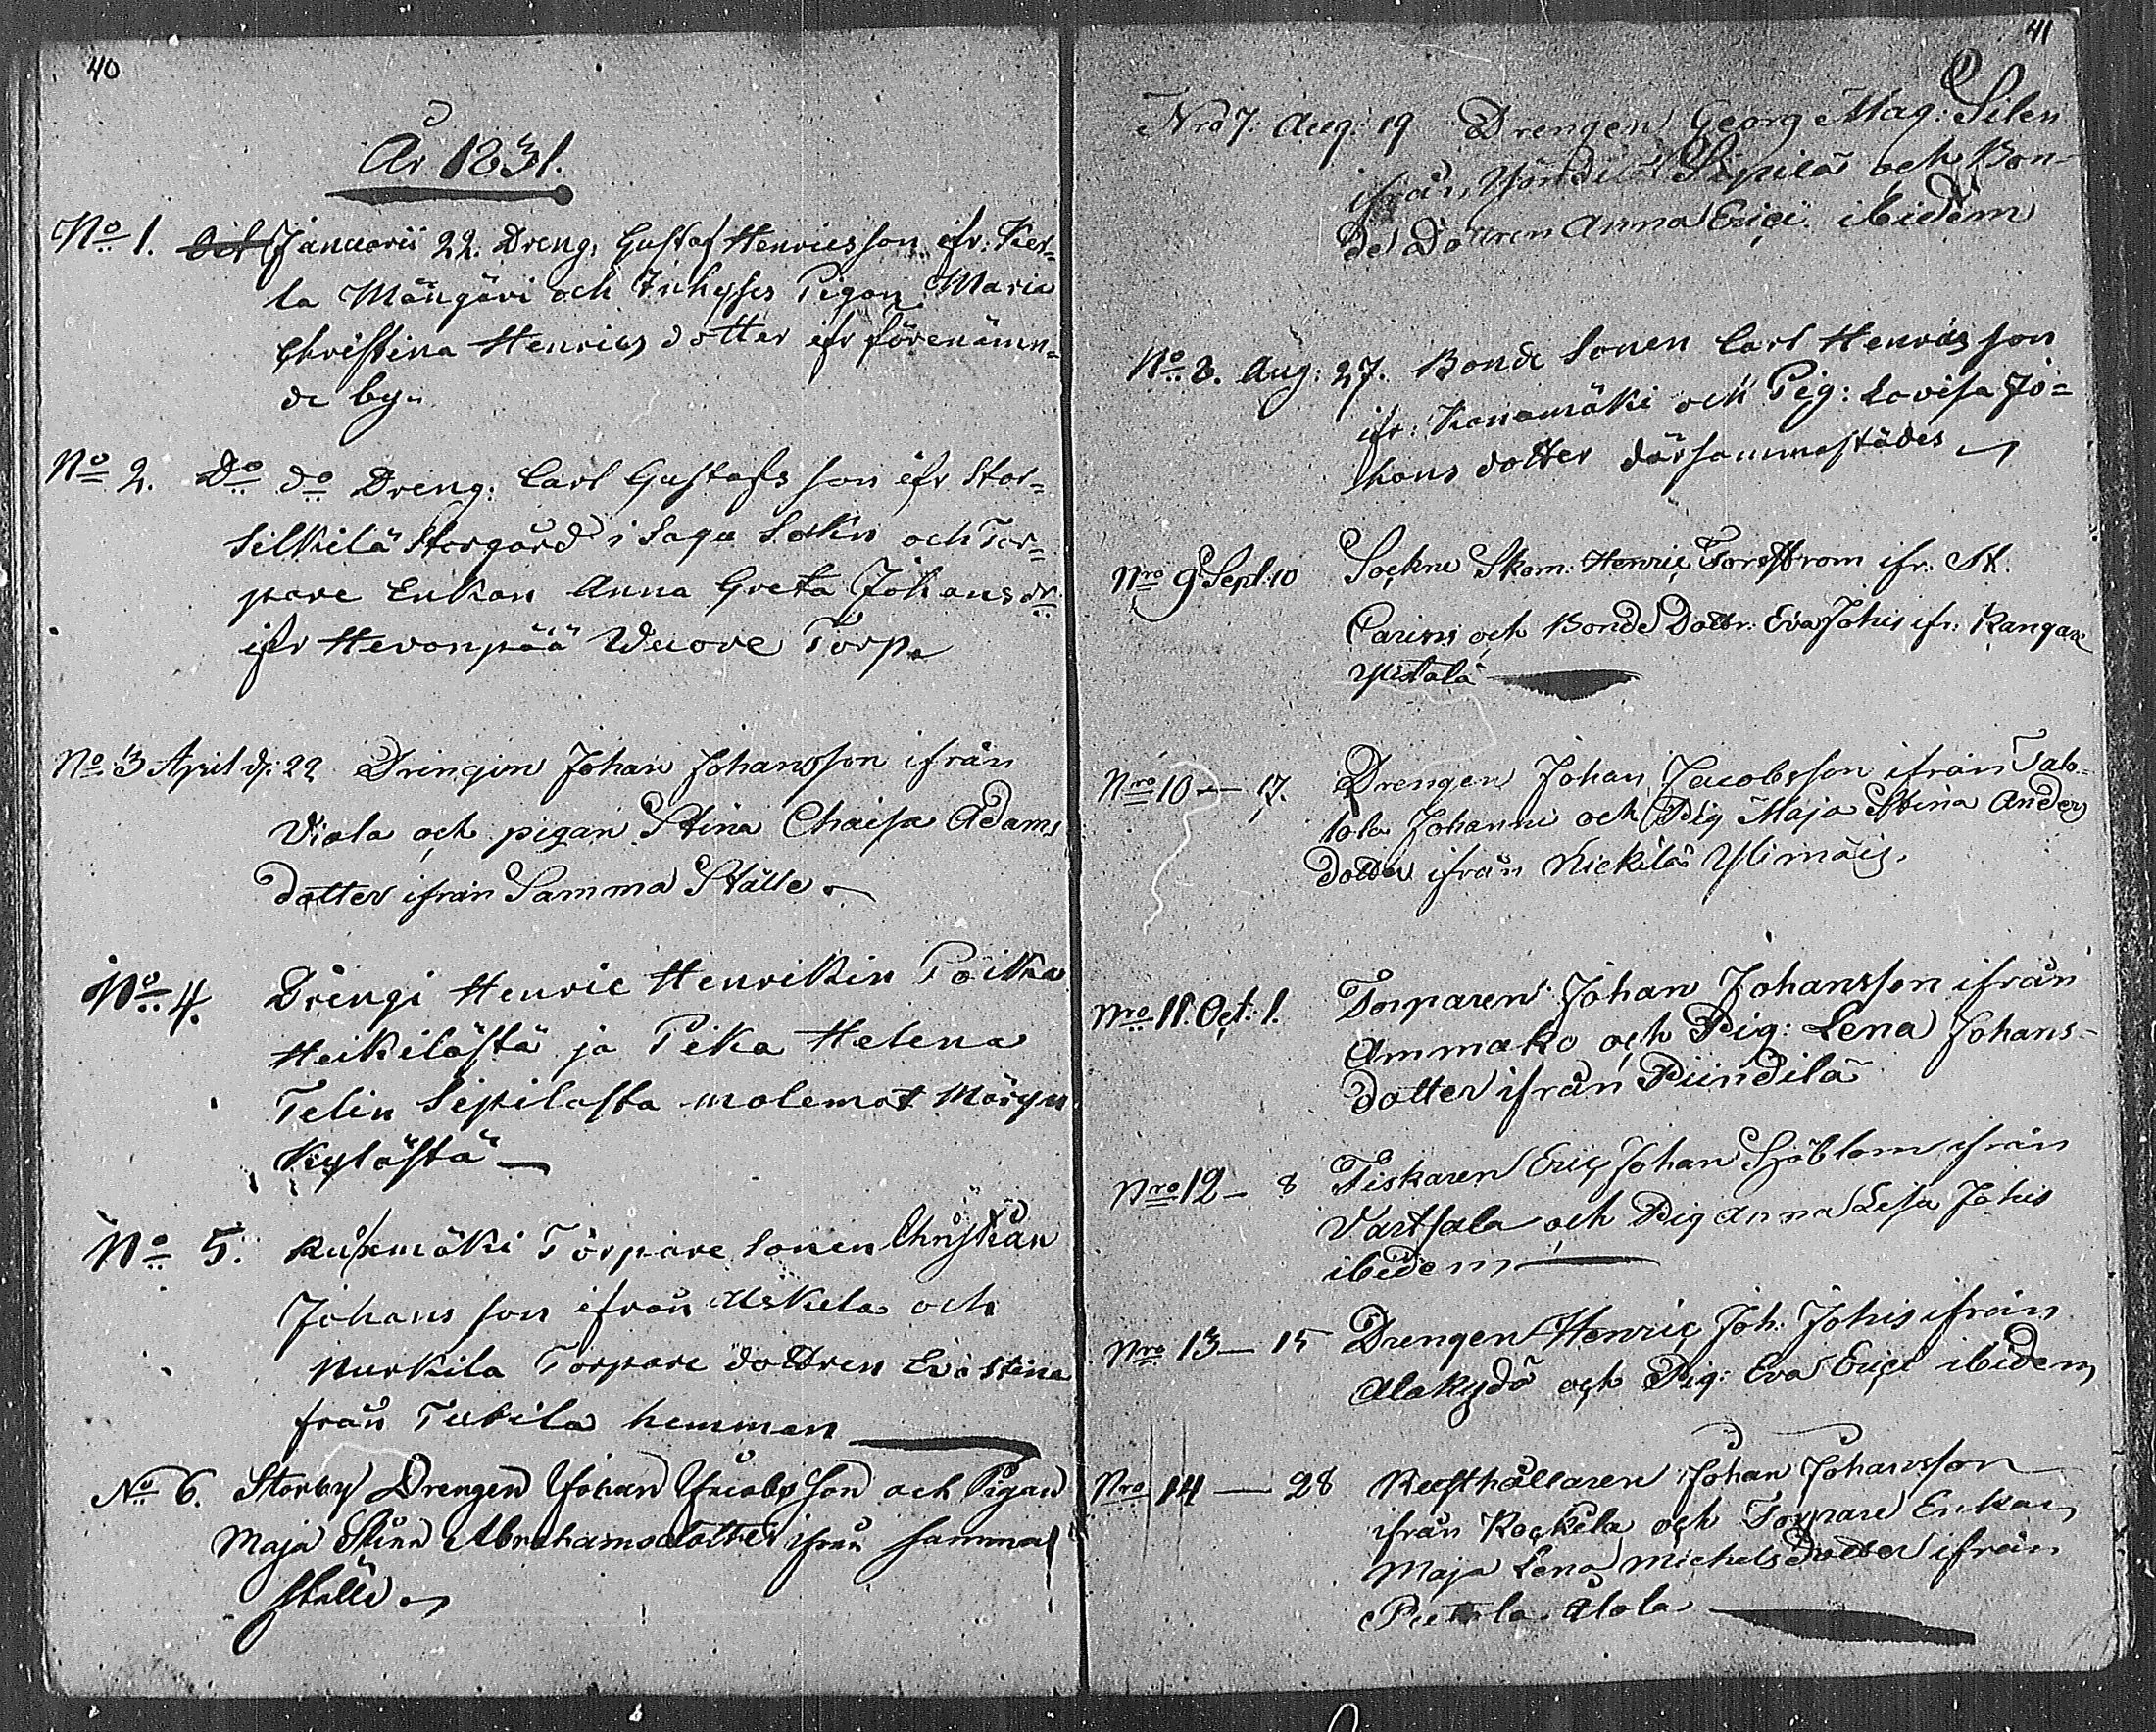 40
År 1831.
No 1. Januarii 22. Dreng: Gustaf Henricsson ifr: Ker=
la Mångåri och Pigan Maria
Christina Henrics dotter ifr förenämn=
de by.
No 2. Do do Dreng: Carl Gustafs son ifr Stor=
Silkilä Storgård i Sagu Sokn och Tor=
pare Enkan Anna Greta Johans dr
ifr Hevonpää Wuore Torp
No 3 April d: 22 Drengen Johan Johansson ifrån
Viala och pigan Stina Chaisa Adams
dotter ifrån Samma Ställe
No 4. Drengi Henric Henrikin Poika
Heikilästä ja Pika Helena
Telin Sepilasta molemat Märyn
Kylästä
No 5. Torpare Sonen Christian
Johans son ifrån Uskela och
Nurkila Torpare dottren Eva Stina
från Tukila hemman
No 6. Storby Drengen Johan Jacobsson och Pigan
Maja Stina Abrahamsdotter ifrån samma
ställe
41
Nro 7. Aug: 19 Drengen Georg Mag: Silen
ifrån Sipilä och Bon-
de Dottren Anna Erici ibidem
No 8. Aug: 27. Bonde Sonen Carl Henrics son
ifr: Kanamäki och Pig: Lovisa Jo=
hans dotter därsammastädes
Nro 9 Sept: 10 Sockne Skom: Henric Forsström ifr. St.
Carins och Bonde Dottr: Eva Johis ifr: Kangare
Yistalä
Nro 10 — 17. Drengen Johan Jacobsson ifrån Tab-
lola Johanni och Pig Maja Stina Anders
dotter ifrån Nickilä Ylimäis.
Nro 11. Oct: 1. Torparen Johan Johansson ifrån
Ammako och Pig: Lena Johans-
dotter ifrån Piindilä
Nro 12 — 8 Fiskaren Eric Johan Sjöblom ifrån
Vartsala och Pig Anna Lisa Johis
ibidem
Nro 13 — 15 Drengen Henric Joh: Johis ifrån
Alakydö och Pig: Eva Erici ibidem
Nro 14 — 28 Rusthållaren Johan Johansson
ifrån Kockila och Torpare Enkan
Maja Lena Michelsdotter ifrån
Alola